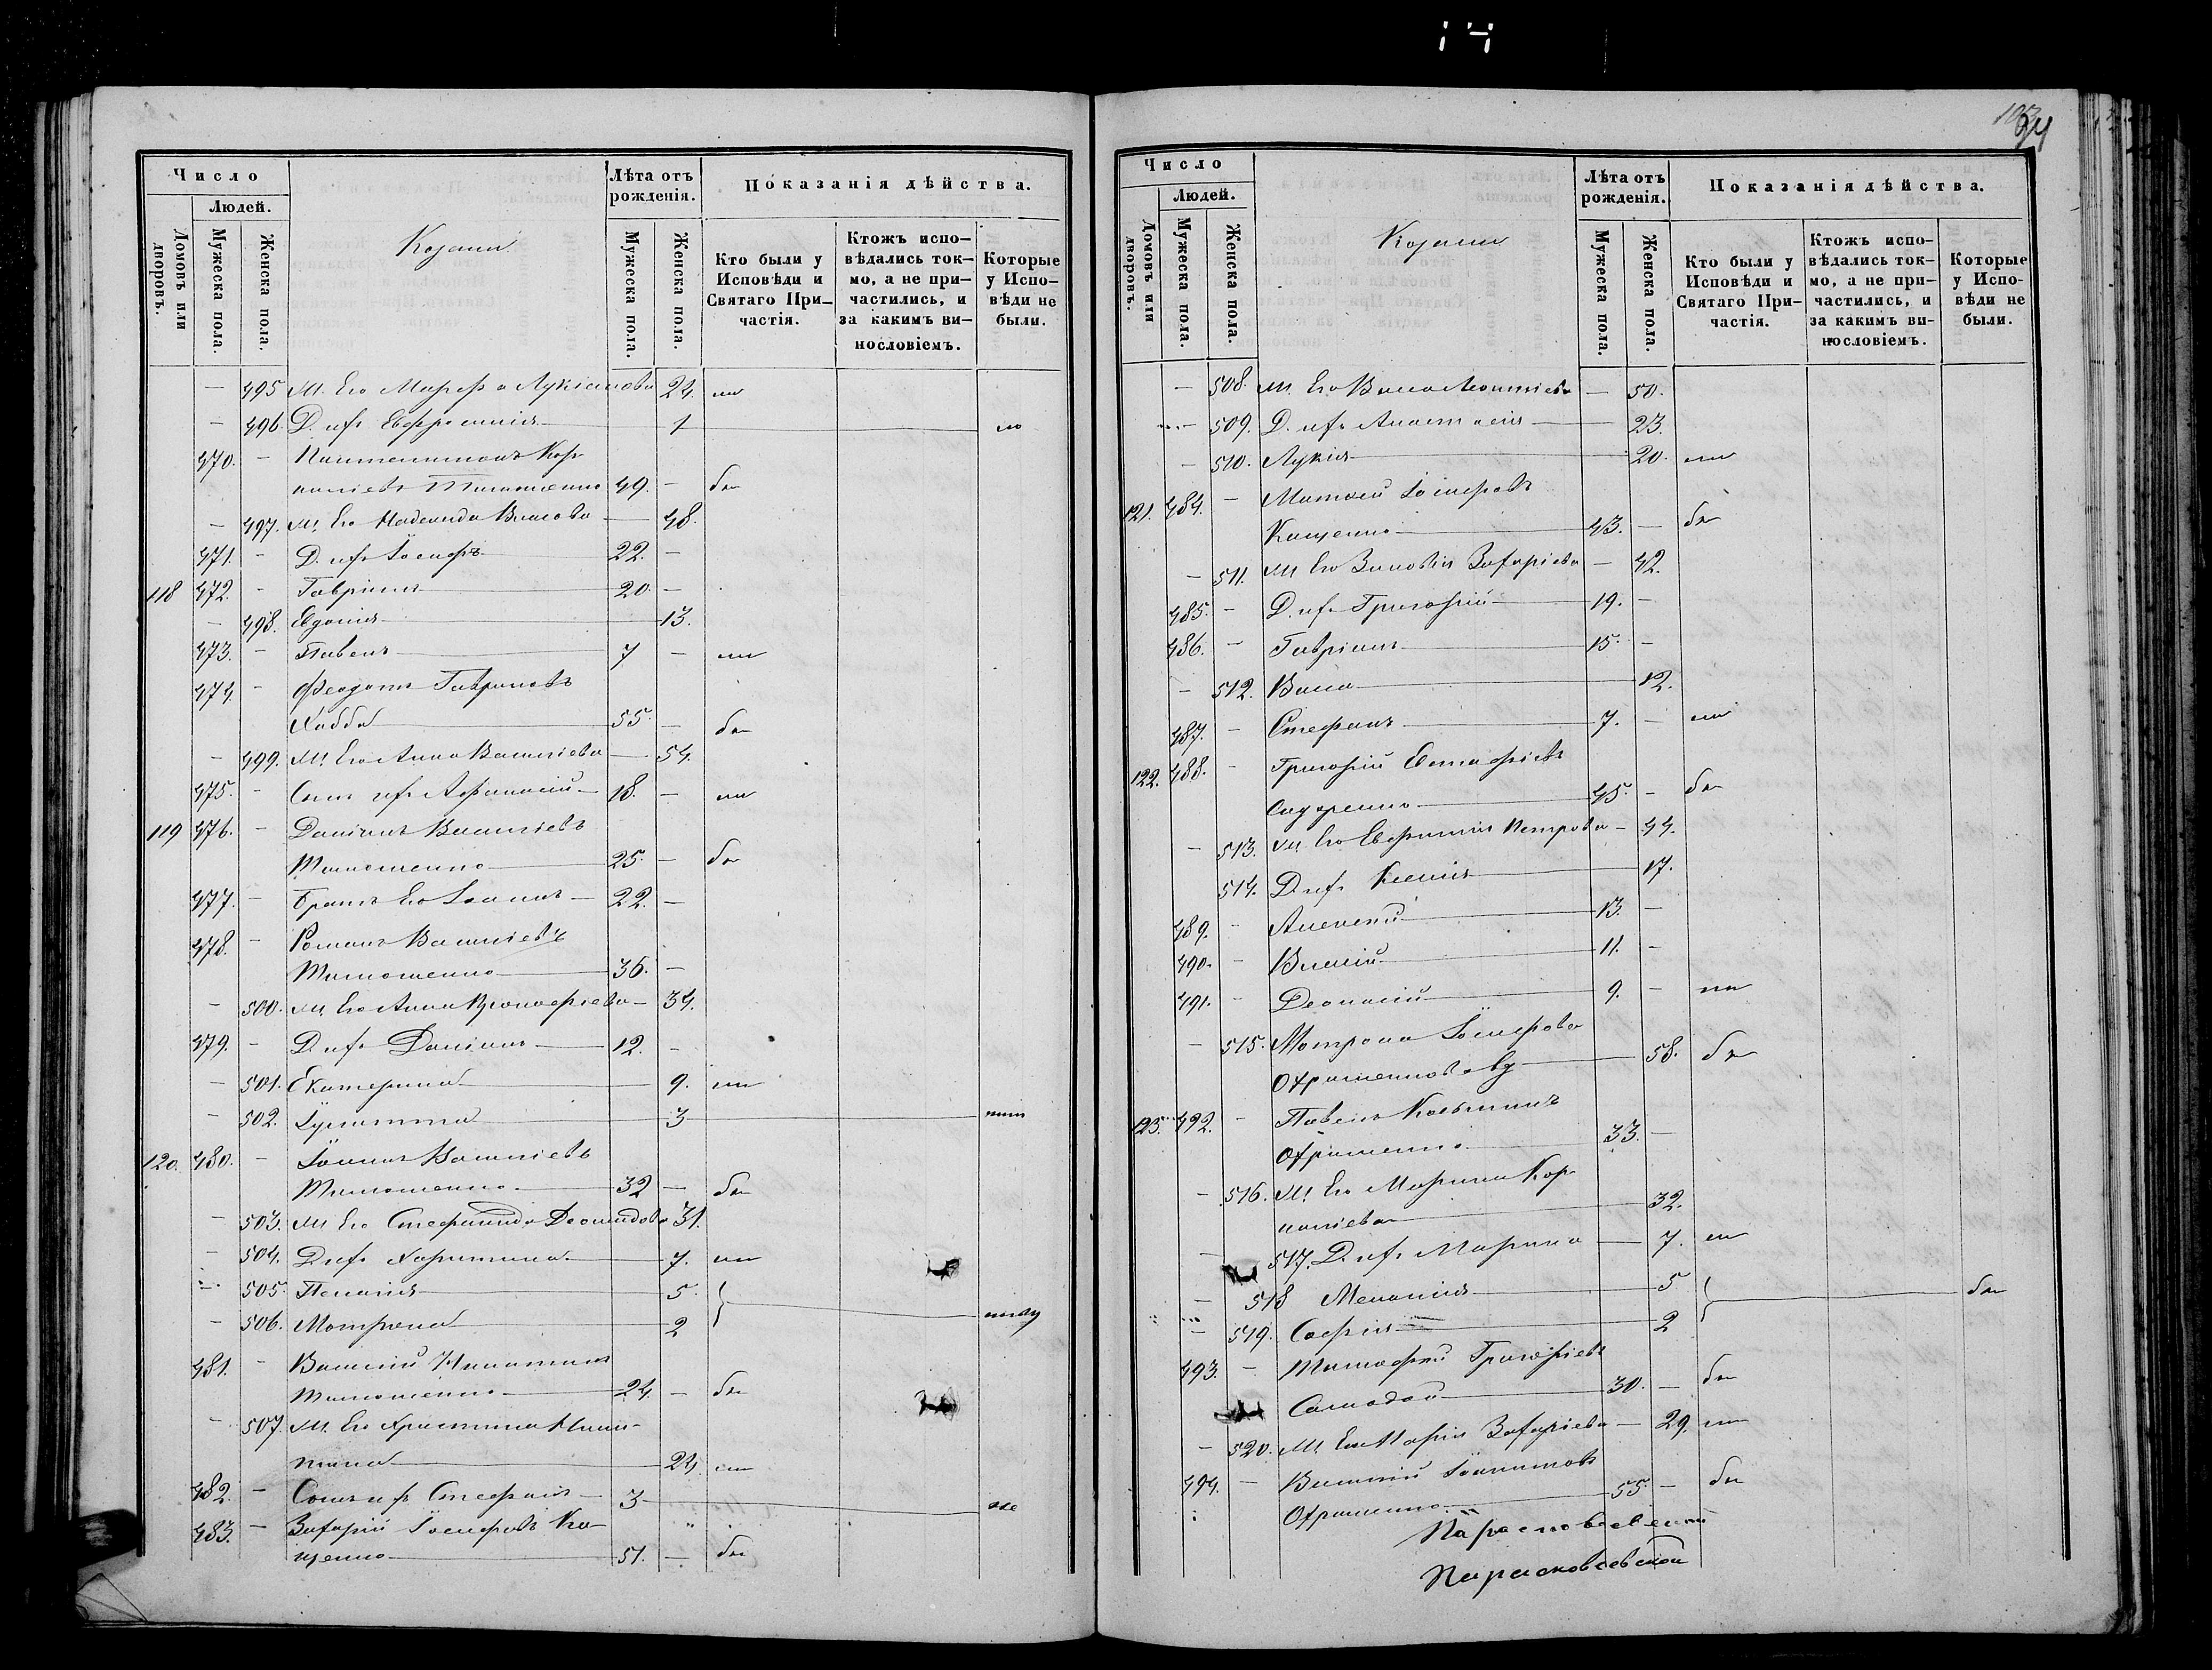 14
103
94
Число
Людей.
Домовъ или дворовъ.
Мужеска пола.
Женска пола.
Козаки
Лѣта отъ рожденія.
Мужеска пола.
Женска пола.
Показанія дѣйства.
Кто были у Исповѣди и Святаго Причастія.
Ктожъ исповѣдались токмо, а не причастились, и за какимъ винословіемъ.
Которые у Исповѣди не были.
— 495 Ж. Его Марфа Лукіанова 24
— 496. Д. ихъ Евфросинія 1
470. — Пантелимонъ Кор-
ниліевъ Тимошенко 49. —
— 497. Ж. Его Надежда Власова — 48.
471. — Д. ихъ Іосифъ 22. —
118 472. — Гавріилъ 20. —
— 498. Евдокія 13.
473. — Павелъ 7 —
474. — Феодотъ Гавриловъ
Хабба 55. —
— 499. Ж. Его Анна Василіева — 54.
475. — Сынъ ихъ Афанасій 18. —
119 476. — Даніилъ Василіевъ
Тимошенко 25. —
477. — Братъ Его Іоаннъ 22. —
478. — Романъ Василіевъ
Тимошенко 36. —
— 500. Ж. Его Анна — 34.
479. — Д. ихъ Даніилъ 12. —
— 501. Екатерина 9.
— 502. Іулитта 3
120. 480. — Іоаннъ Василіевъ
Тимошенко 32 —
— 503. Ж. Его Стефанида 31.
— 504. Д. ихъ Харитина 7.
— 505. Пелагія 5.
— 506. Мотрона 2
481. — Василій Никитинъ
Тимошенко 24. —
— 507. Ж. Его Христина Ники-
тина 24.
482. — Сынъ ихъ Стефанъ 3
483. — Захарій Іосифовъ Ко-
щенко 51. —
Число
Людей.
Домовъ или дворовъ.
Мужеска пола.
Женска пола.
Козаки
Лѣта отъ рожденія.
Мужеска пола.
Женска пола.
Показанія дѣйства.
Кто были у Исповѣди и Святаго Причастія.
Ктожъ исповѣдались токмо, а не причастились, и за какимъ винословіемъ.
Которые у Исповѣди не были.
— 508. Ж. Его Васса Леонтіева — 50.
509. Д. ихъ Анастасія — 23.
— 510. Лукія 20.
121. 484. — Матвей Іосифовъ
Кащенко 43. —
— 511. Ж. Его Зиновія Захаріева — 42.
485. — Д. ихъ Григорій 19. —
486. — Гавріилъ 15. —
— 512. Васса 12.
487. — Стефанъ 7. —
122. 488. — Григорій Евстафіевъ
Сидоренко 45. —
— 513. Ж. Его Евфимія Петрова — 44.
514. Д. ихъ Ксенія 17.
489. — Алексій 13. —
490. — Василій 11. —
491. — Діонисій 9. —
— 515. Мотрона Іосифова
Охрименкова вд 58.
123. 492. — Павелъ Косьминъ
Охрименко 33. —
— 516. Ж. Его Марина Кор-
ниліева 32.
— 517. Д. ихъ Марина — 7.
— 518 Меланія 5
— 519. Софія 2
493. — Тимофей Григоріевъ
Самодай 30. —
— 520. Ж. Его Марія Захаріева — 29.
494. — Василій Іоанновъ
Охрименко 55. —
Парасковеевской
Парасковеевской